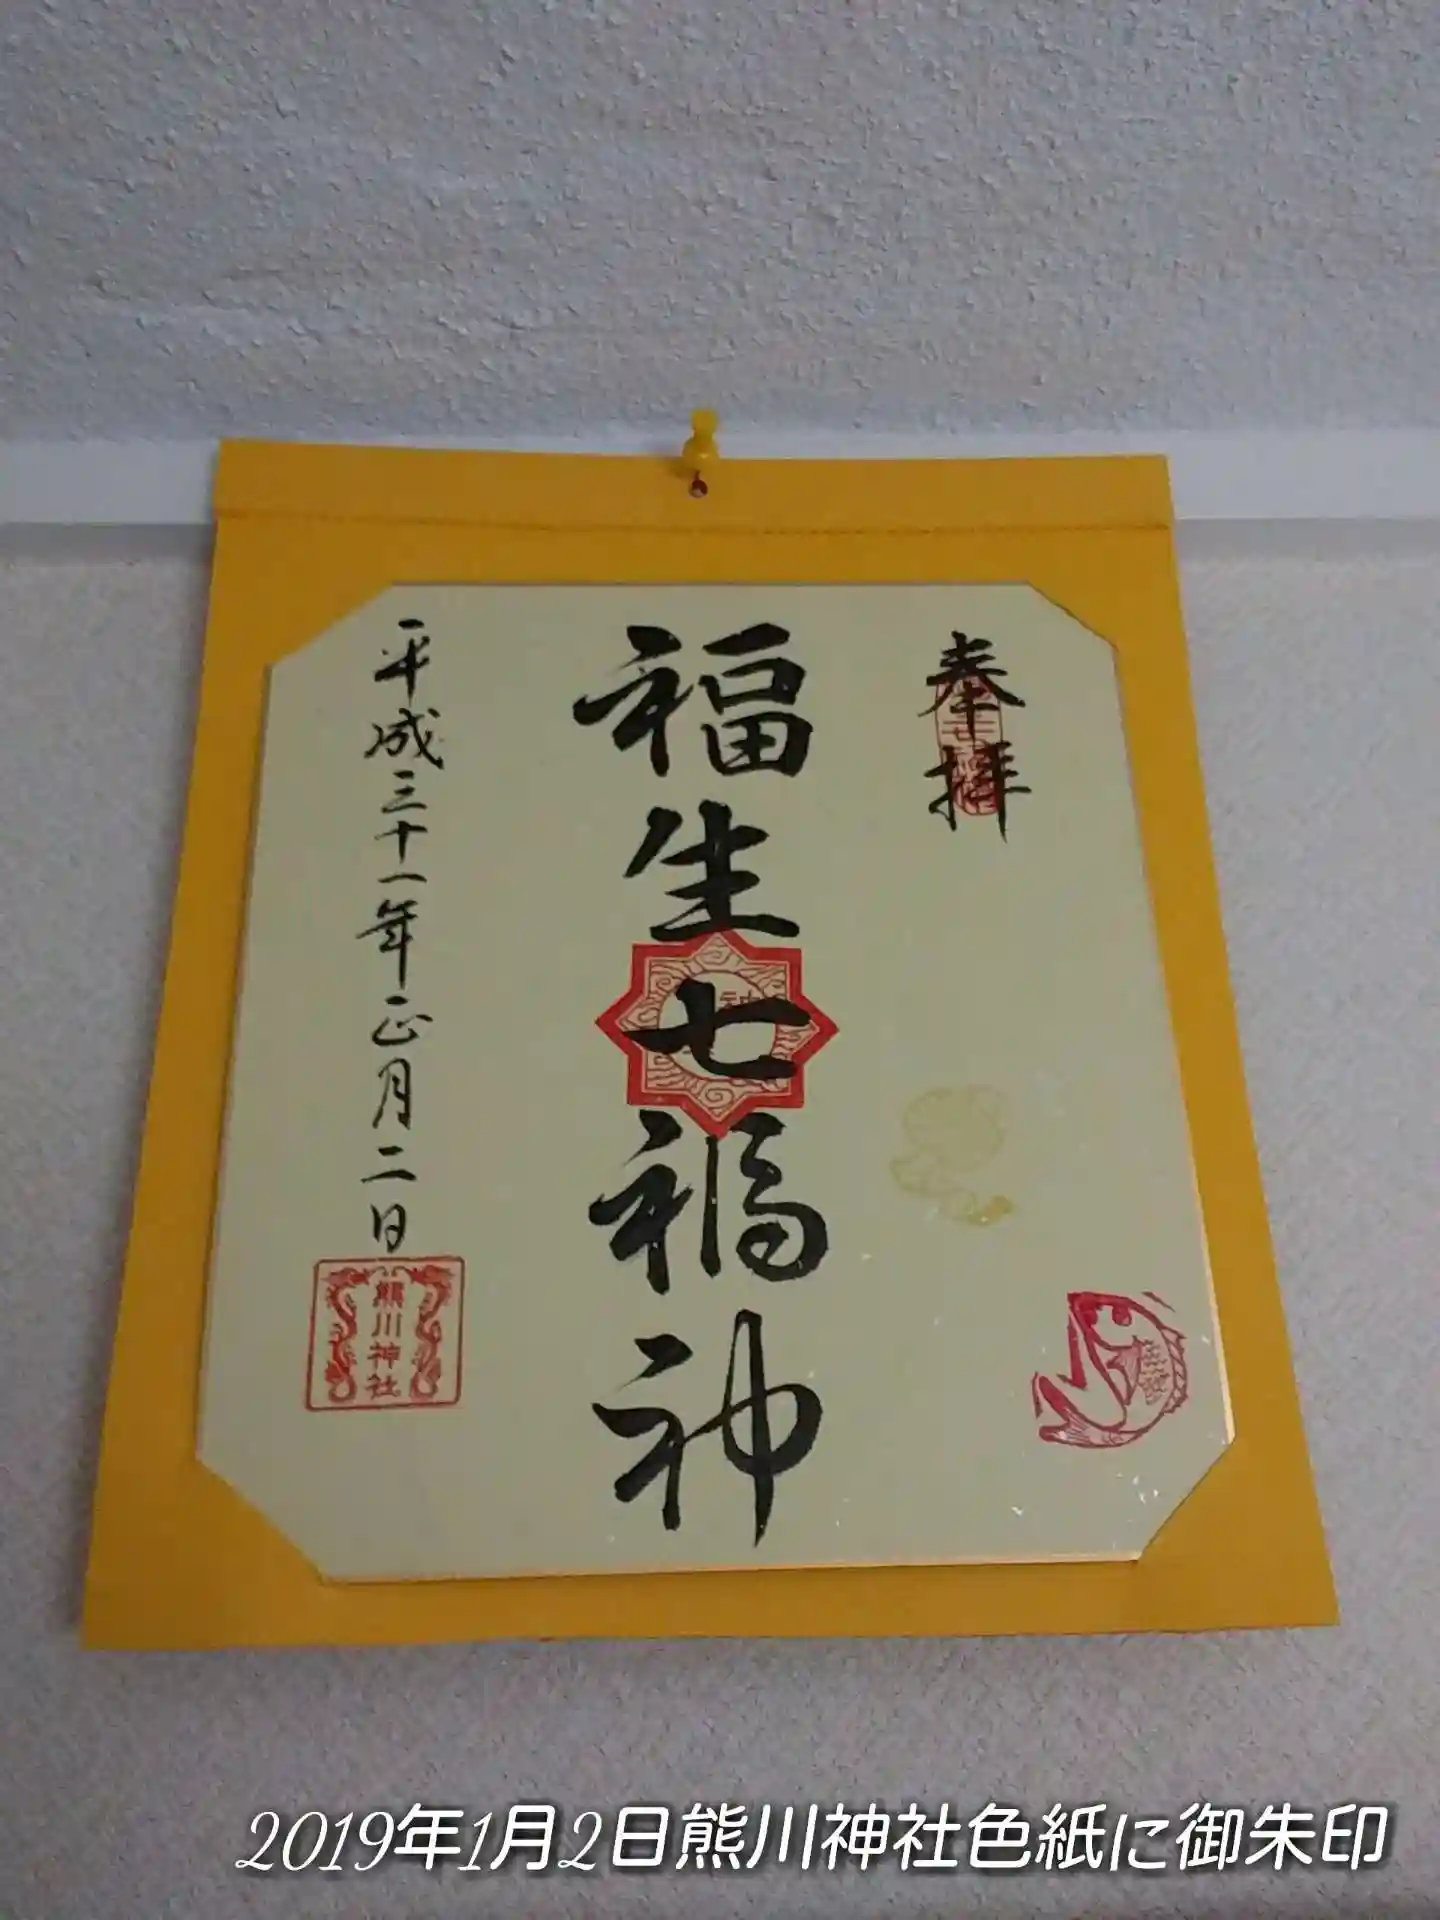 奉拝
福生七福神
平成三十一年正月二日
熊川神社
2019年1月2日熊川神社色紙に御朱印